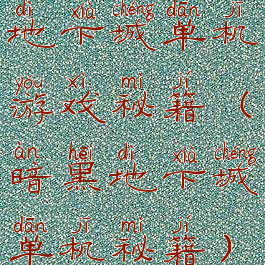 dì xià chéng dān jī
地下城单机
yóu xì mì jí
游戏秘籍（
àn hēi dì xià chéng
暗黑地下城
dān jī mì jí
单机秘籍）